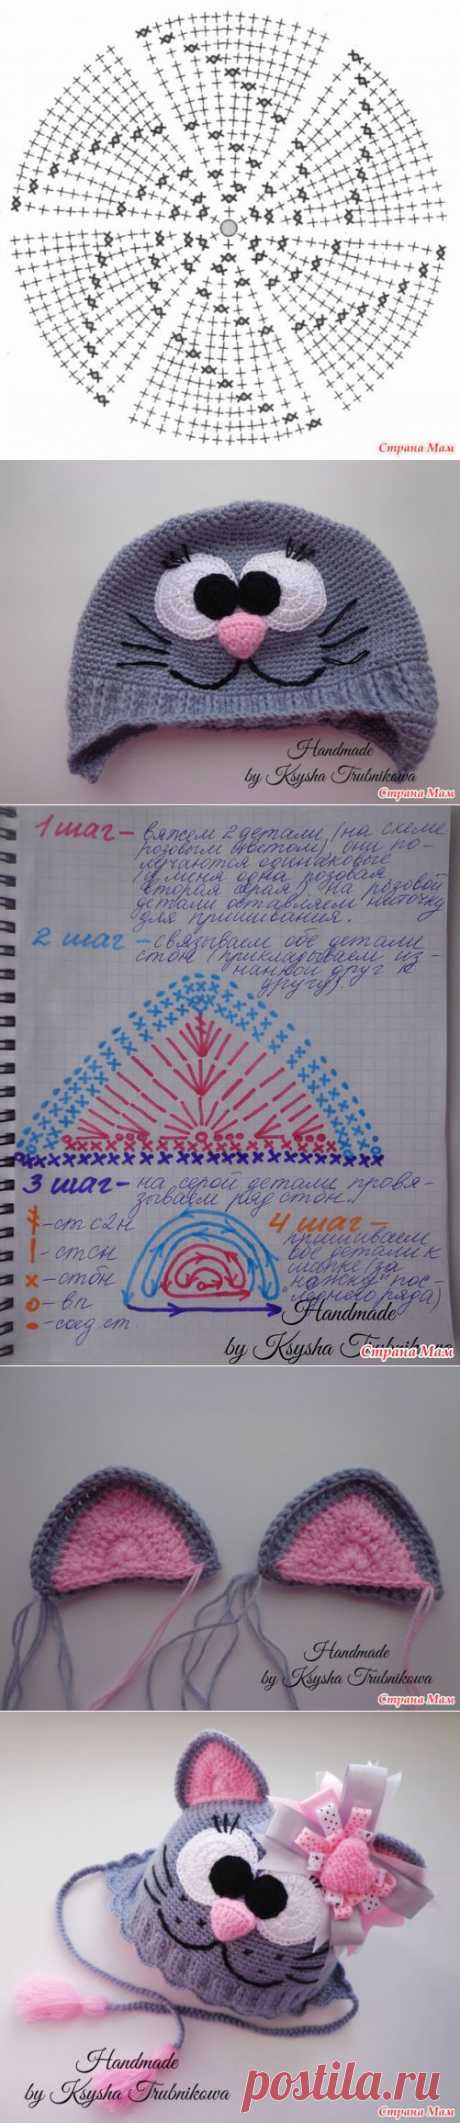 Страна Мам
Handmade
by Ksysha Trubnikowa
Страна Мам
1 шаг – вяжем 2 детали (на схеме
розовым цветом), они по-
лучаются одинаковые
(у меня одна розовая
вторая серая). На розовой
детали оставляем ниточку
для пришивания.
2 шаг – связываем обе детали
стбн (прикладываем из-
нанкой друг к
другу).
3 шаг – на серой детали провя-
зываем ряд стбн.
– стс2н
– стсн
– стбн
– вп
– соед.ст.
4 шаг –
пришиваем
все детали к
шапке (за
"ножку" пос-
леднего ряда)
Handmade
by Ksysha Trubnikowa
Страна Мам
Handmade
by Ksysha Trubnikowa
Страна Мам
Handmade
by Ksysha Trubnikowa
postila.ru
Страна Мам